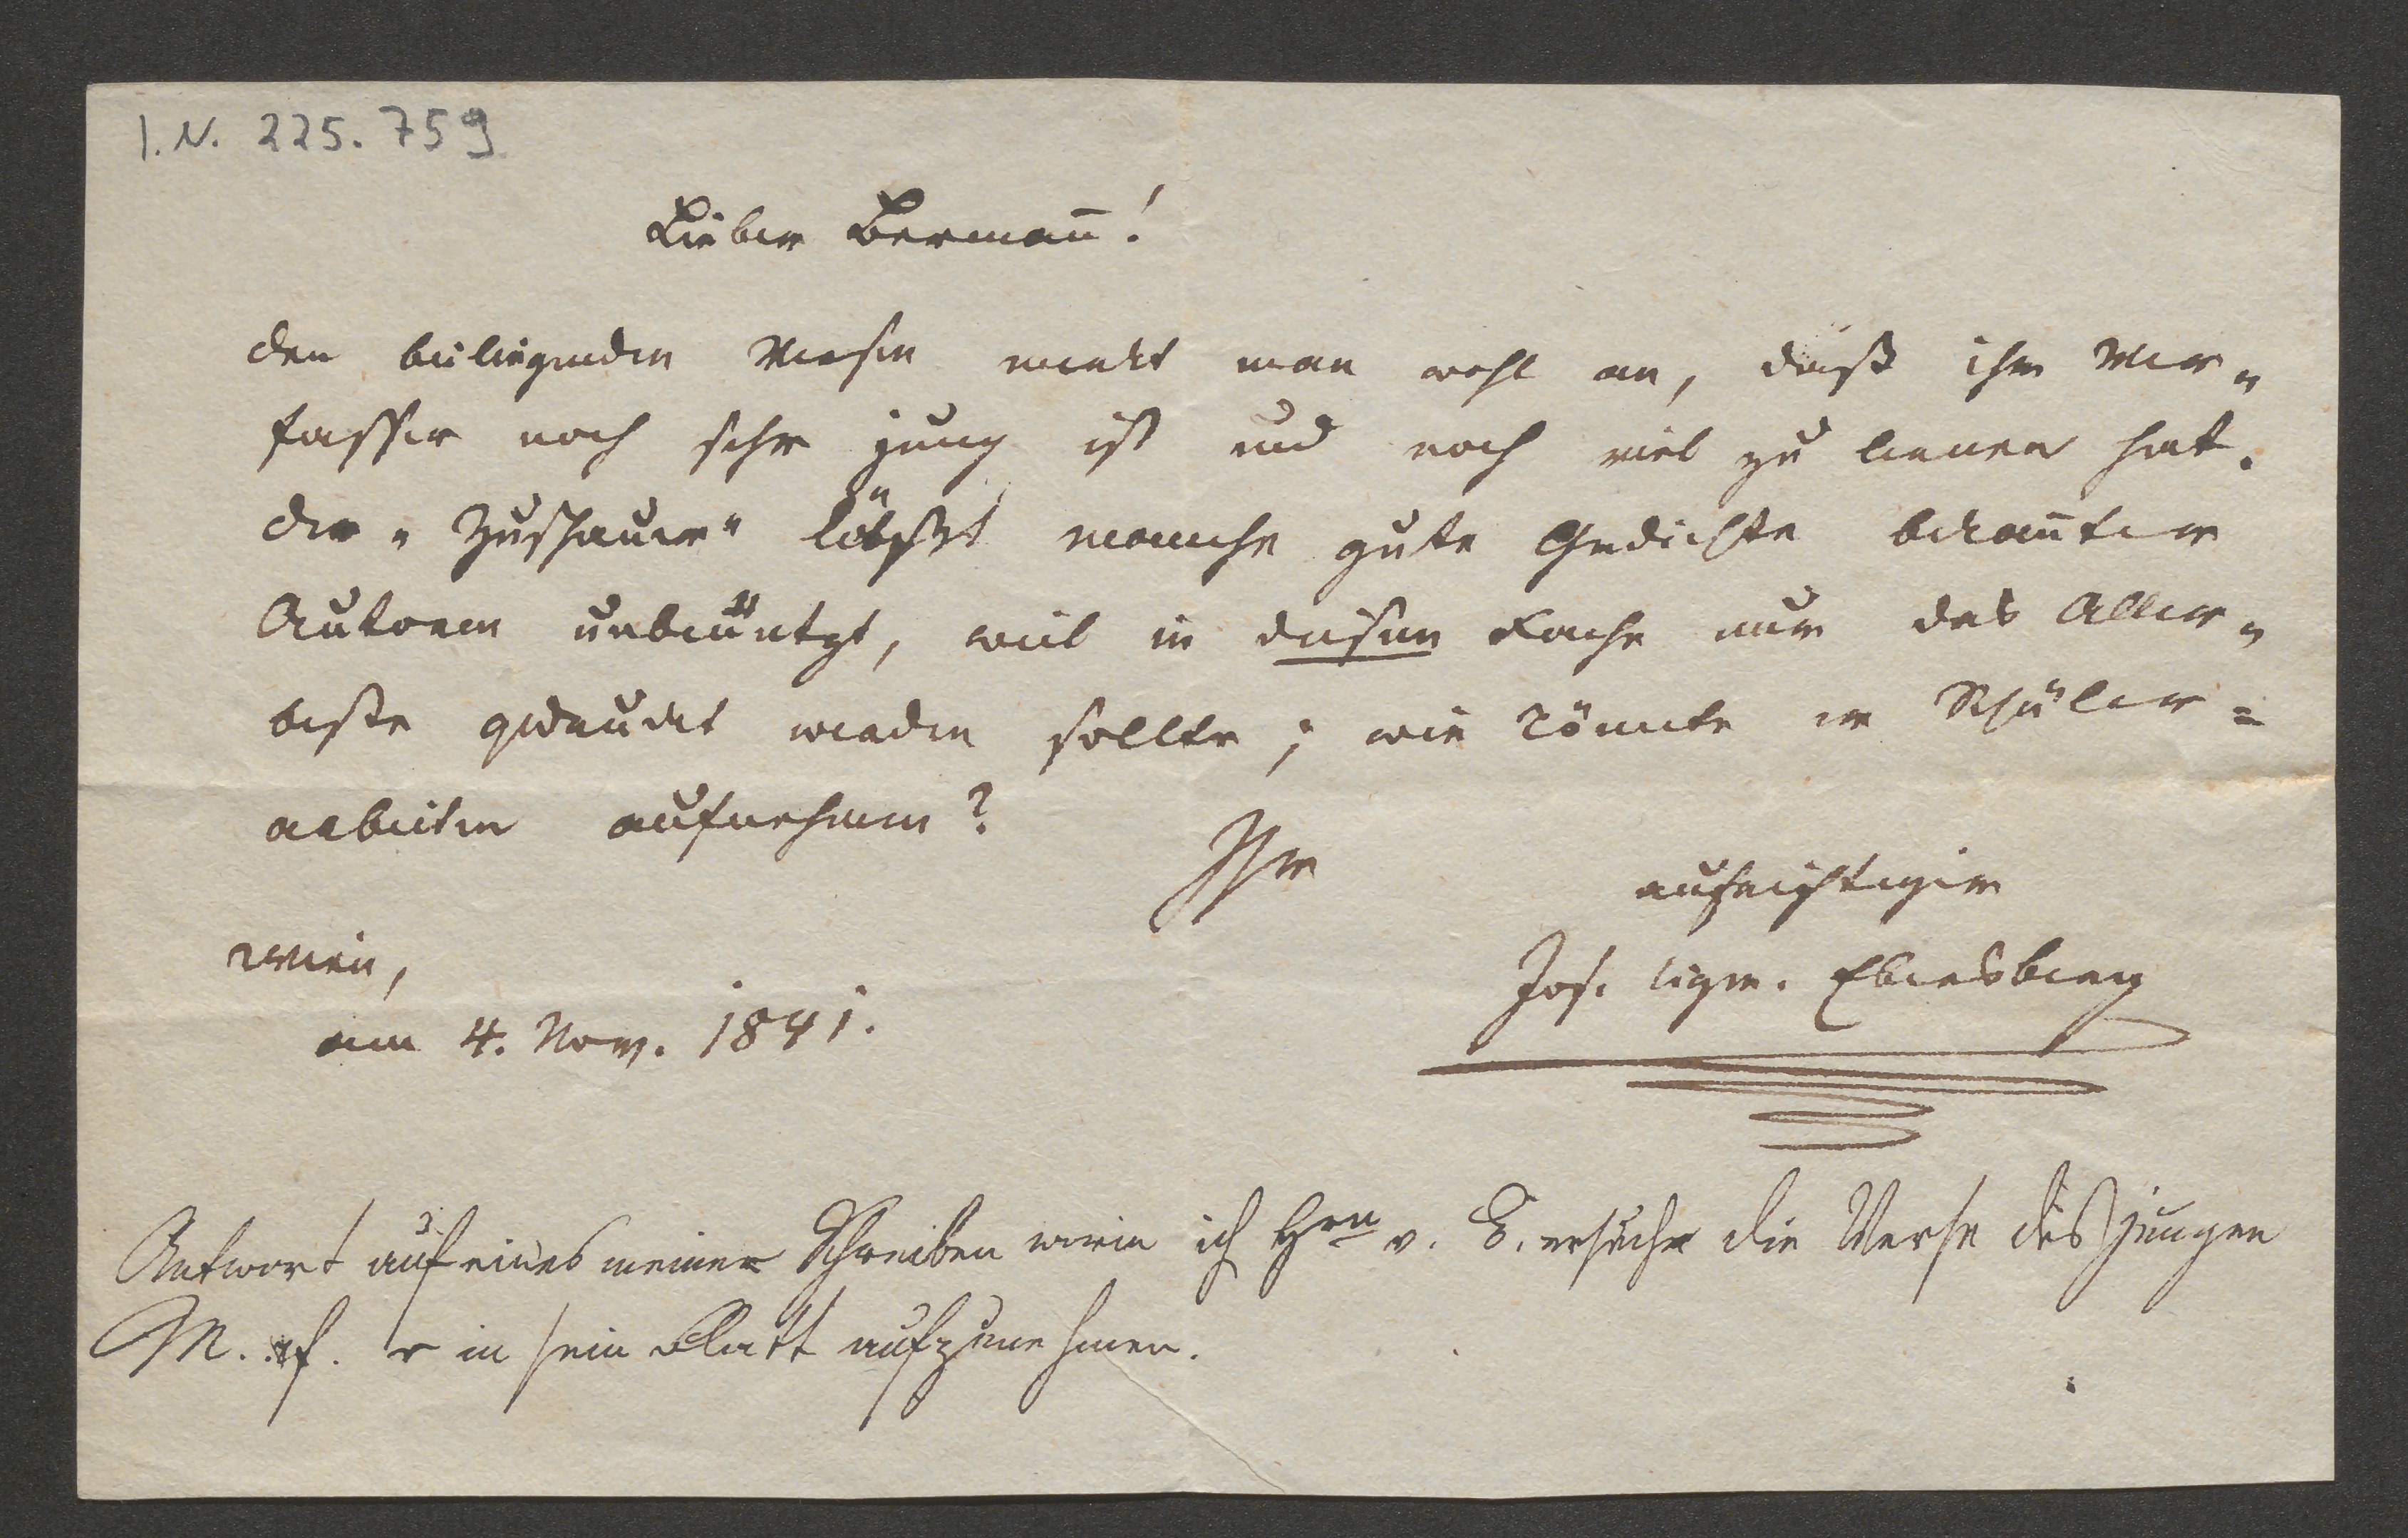 I.N. 225.759
Lieber Bermann!
den beiliegenden Versen merkt man wohl an, daß ihr Ver„
fasser noch sehr jung ist und noch viel zu lernen hat.
der „Zuschauer“ läßt manche gute Gedichte bekannter
Autoren unbenützt, weil in diesem Fache nur das Aller„
beste gedruckt werden sollte; wie könnte er Schüler=
arbeiten aufnehmen?
Ihr
aufrichtiger
Jos. Sigm. Ebersberg
Wien,
am 4. Nov. 1841.
Antwort auf eines meiner Schreiben worin ich Hrn v. E. ersuche die Verse des jungen
M. f. r in sein Blatt aufzunehmen.